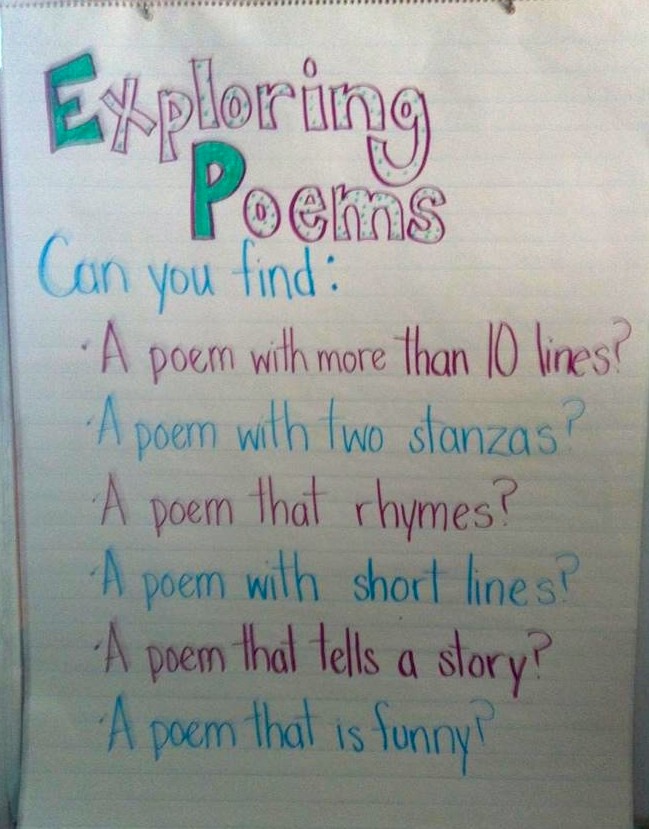 Exploring
Poems
Can you find:
· A poem with more than 10 lines?
· A poem with two stanzas?
· A poem that rhymes?
· A poem with short lines?
· A poem that tells a story?
· A poem that is funny?